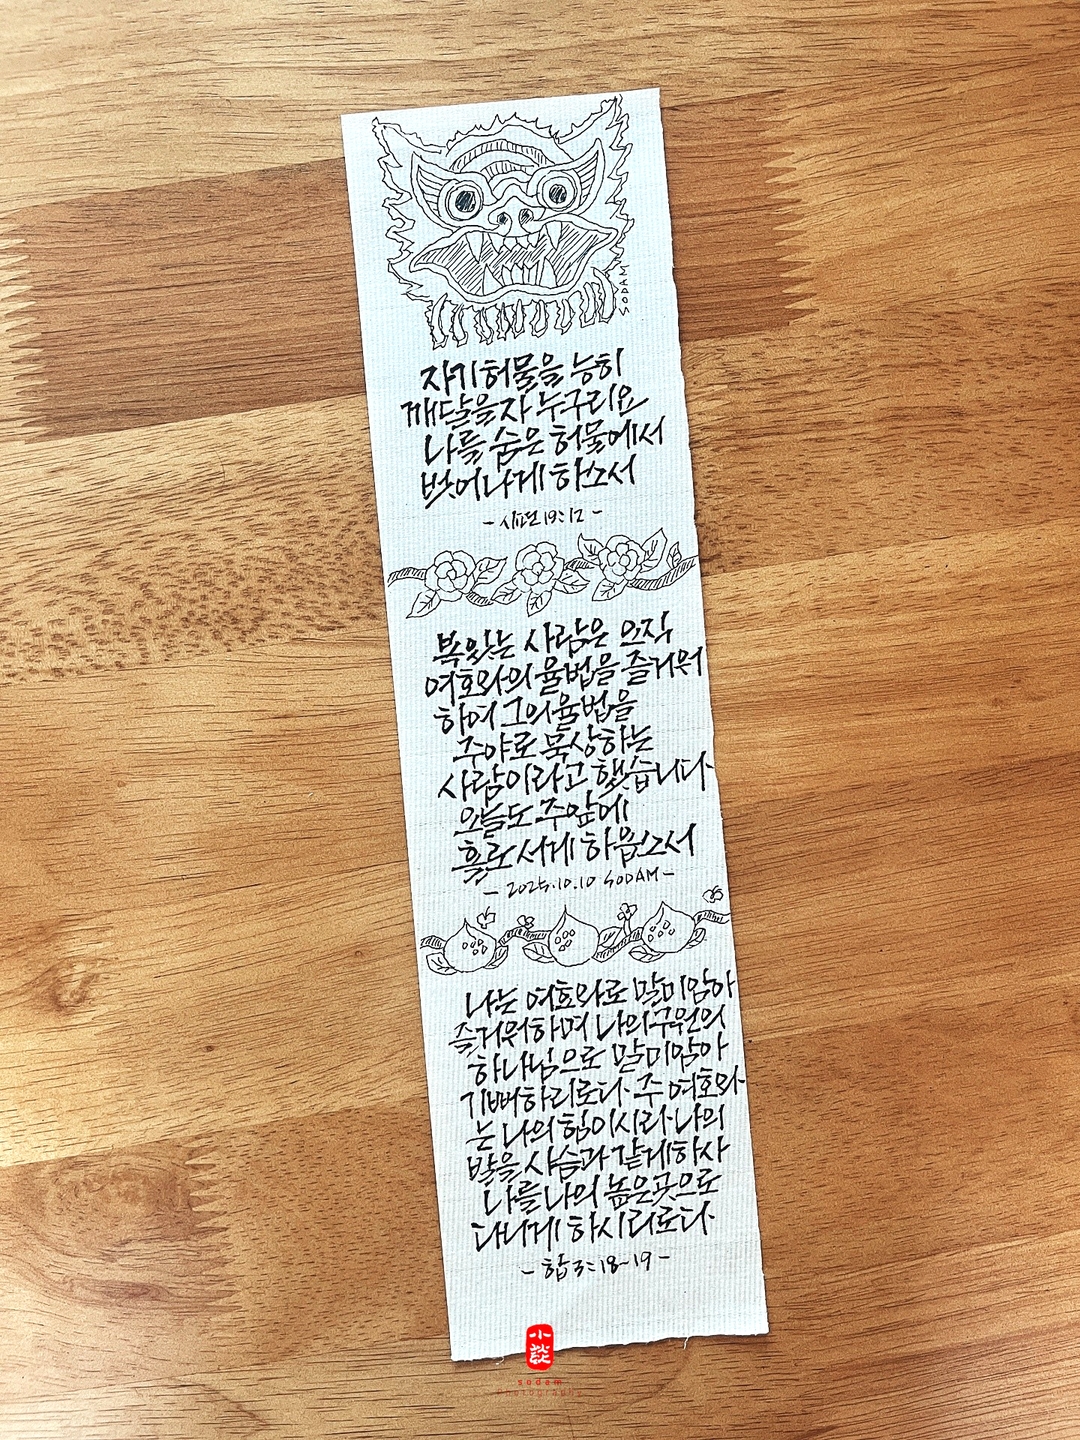 SODAM
자기 허물을 능히
깨달을 자 누구리요
나를 숨은 허물에서
벗어나게 하소서
- 시편 19:12 -
복있는 사람은 오직
여호와의 율법을 즐거워
하여 그의 율법을
주야로 묵상하는
사람이라고 했습니다.
오늘도 주앞에
홀로 서게 하옵소서
- 2025.10.10 SODAM -
나는 여호와로 말미암아
즐거워하며 나의 구원의
하나님으로 말미암아
기뻐하리로다. 주 여호와
는 나의 힘이시라. 나의
발을 사슴과 같게 하사
나를 나의 높은 곳으로
다니게 하시리로다.
- 합 3:18~19 -
小談
sodam
photography